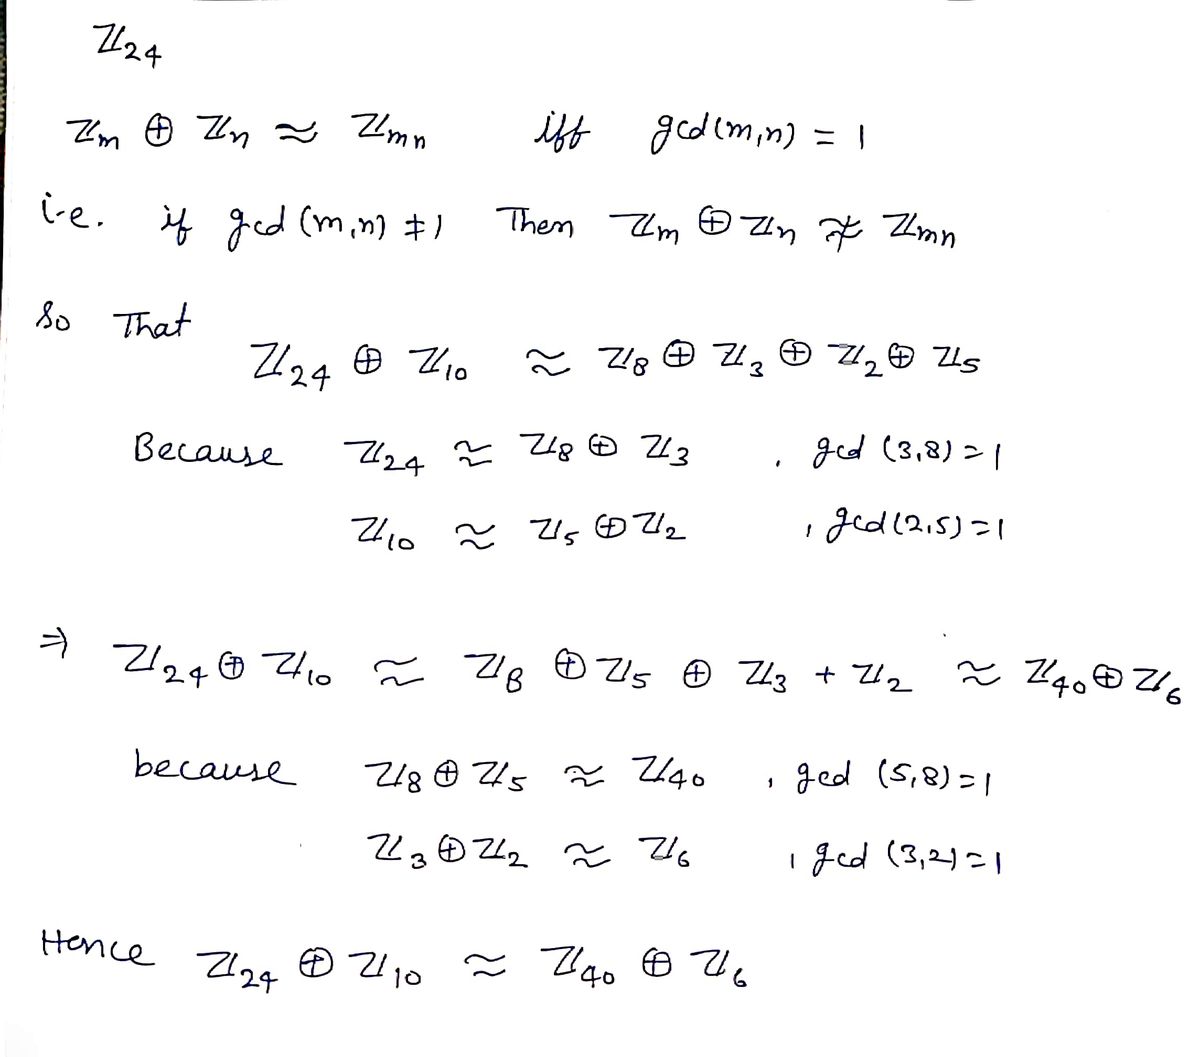 ℤ₂₄
ℤm ⊕ ℤn ≈ ℤmn iff gcd(m,n) = 1
i.e. if gcd (m,n) ≠ 1 Then ℤm ⊕ ℤn ≉ ℤmn
So That
ℤ₂₄ ⊕ ℤ₁₀ ≈ ℤ₈ ⊕ ℤ₃ ⊕ ℤ₂ ⊕ ℤ₅
Because ℤ₂₄ ≈ ℤ₈ ⊕ ℤ₃ , gcd (3,8) = 1
ℤ₁₀ ≈ ℤ₅ ⊕ ℤ₂ , gcd (2,5) = 1
⇒ ℤ₂₄ ⊕ ℤ₁₀ ≈ ℤ₈ ⊕ ℤ₅ ⊕ ℤ₃ + ℤ₂ ≈ ℤ₄₀ ⊕ ℤ₆
because ℤ₈ ⊕ ℤ₅ ≈ ℤ₄₀ , gcd (5,8) = 1
ℤ₃ ⊕ ℤ₂ ≈ ℤ₆ , gcd (3,2) = 1
Hence ℤ₂₄ ⊕ ℤ₁₀ ≈ ℤ₄₀ ⊕ ℤ₆